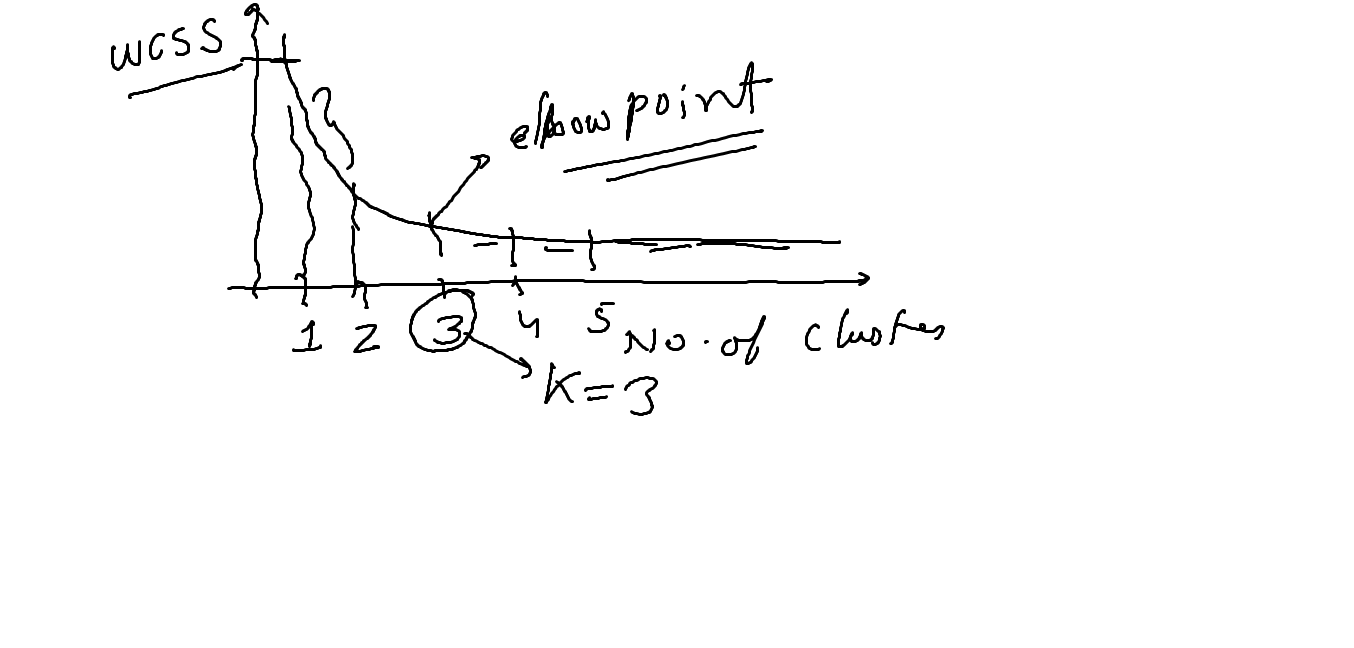 WCSS
elbow point
1 2 3 4 5 No. of clusters
K = 3